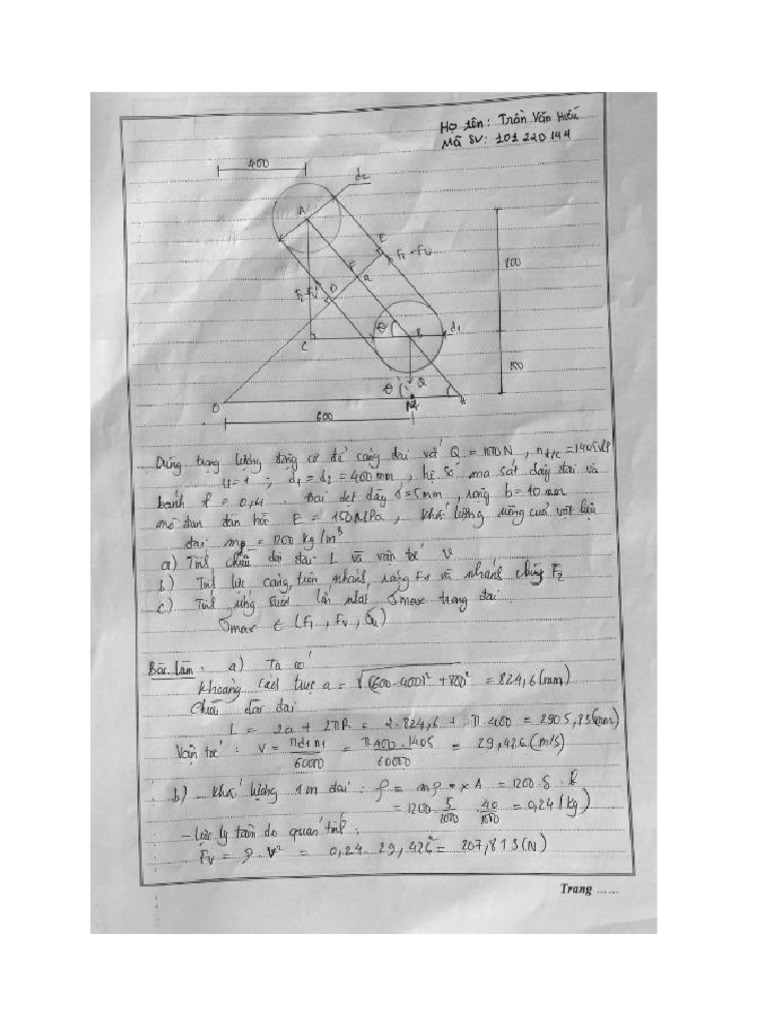 Họ tên: Trần Văn Hiếu
Mã SV: 101220144
400
d2
A
E
E
F
F1 - Fv
a
100
D
C
θ
B
d1
θ
Q
150
O
H
600
Dùng trọng lượng động cơ để căng đai với Q = N, nđ/c = 1405 v/p
u = 1 ; d1 = d2 = 400 mm, hệ số ma sát dây đai và
bánh f = 0,4. Đai dẹt dày δ = 5mm, rộng b = 40 mm
mô đun đàn hồi E = 150 MPa, khối lượng riêng của vật liệu
đai mρ = 1200 kg/m³
a) Tính chiều dài đai L và vận tốc V
b) Tính lực căng trên nhánh căng F1 và nhánh chùng F2
c) Tính ứng suất lớn nhất σmax trong đai.
σmax ∈ (F1, Fv, σu)
Bài làm: a) Ta có
Khoảng cách trục a = √((600-400)² + 800²) = 824,6 (mm)
Chiều dài đai
L = 2a + 2πR = 2.824,6 + π.400 = 2905,83 (mm)
Vận tốc: V = πd1n1/60000 = π.400.1405/60000 = 29,426 (m/s)
b) Khối lượng 1m đai: ρ = mρ × A = 1200.δ.b
= 1200. 5/1000 . 40/1000 = 0,24 (kg)
- Lực ly tâm do quán tính:
Fv = ρ.V² = 0,24. 29,426² = 207,813 (N)
Trang ......